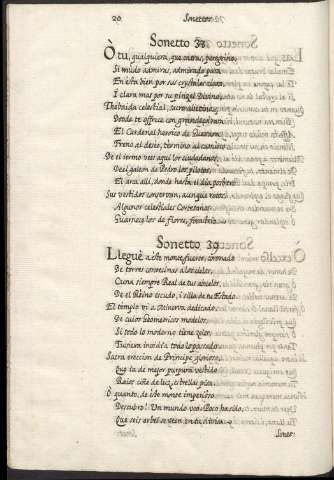 20 Sonetto
Sonetto 37
Ò tu, qualquiera, que entras, peregrino,
Si mudo admiras, admirado para
En esta bien por sus cristales clara,
I clara mas por su pinzel Divino,
Thebaida celestial, sacro Aventino
Donde te offrece con grandeza rara
El Cardenal heroico de Guevara
Freno al desio, termino al camino
De el Yermo ves aqui los ciudadanos,
De el galeon de Pedro los pilotos,
El ara alli, donde hasta el dia
Sus vestidos conservan, aunque rotos;
Algunos celestiales Cortesanos
Guarnecelos de flores,
Sonetto 39
Llegué a este monte fuerte, coronado
De torres convecinas a los cielos,
Cuna siempre Real de tus abuelos,
De el Reino escudo, i silla de tu Estado
El templo vi a Minerva dedicado,
De cuios Geometricos modelos,
Si todo lo moderno tiene zelos,
Tuviera invidia todo lo passado
Sacra ereccion de Principe glorioso,
Que ia de mejor purpura vestido
Raios ciñe de luz, estrellas pisa
Ò quanto, de este monte imperioso
Descubro! Un mundo veo. Poco ha sido,
Que seis orbes se veen en tu divisa
Sonet: